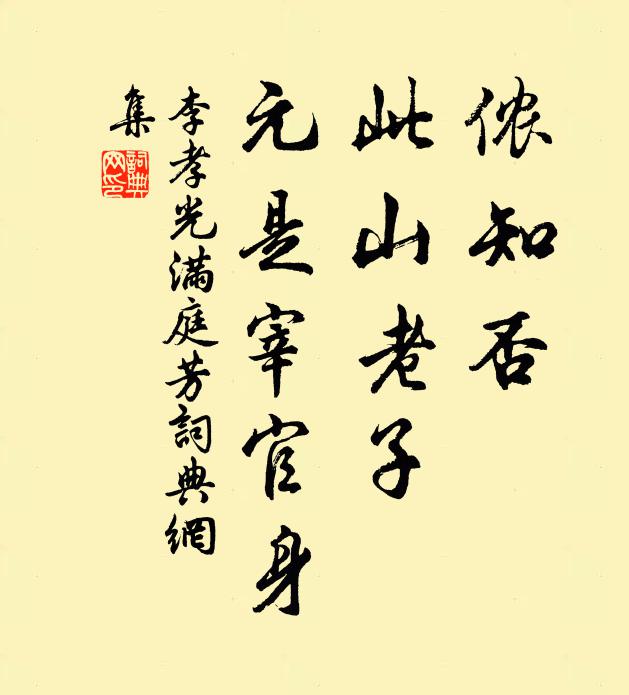 侬知否
此山老子
元是宰官身
李孝光满庭芳詞典網
集
詞典網印